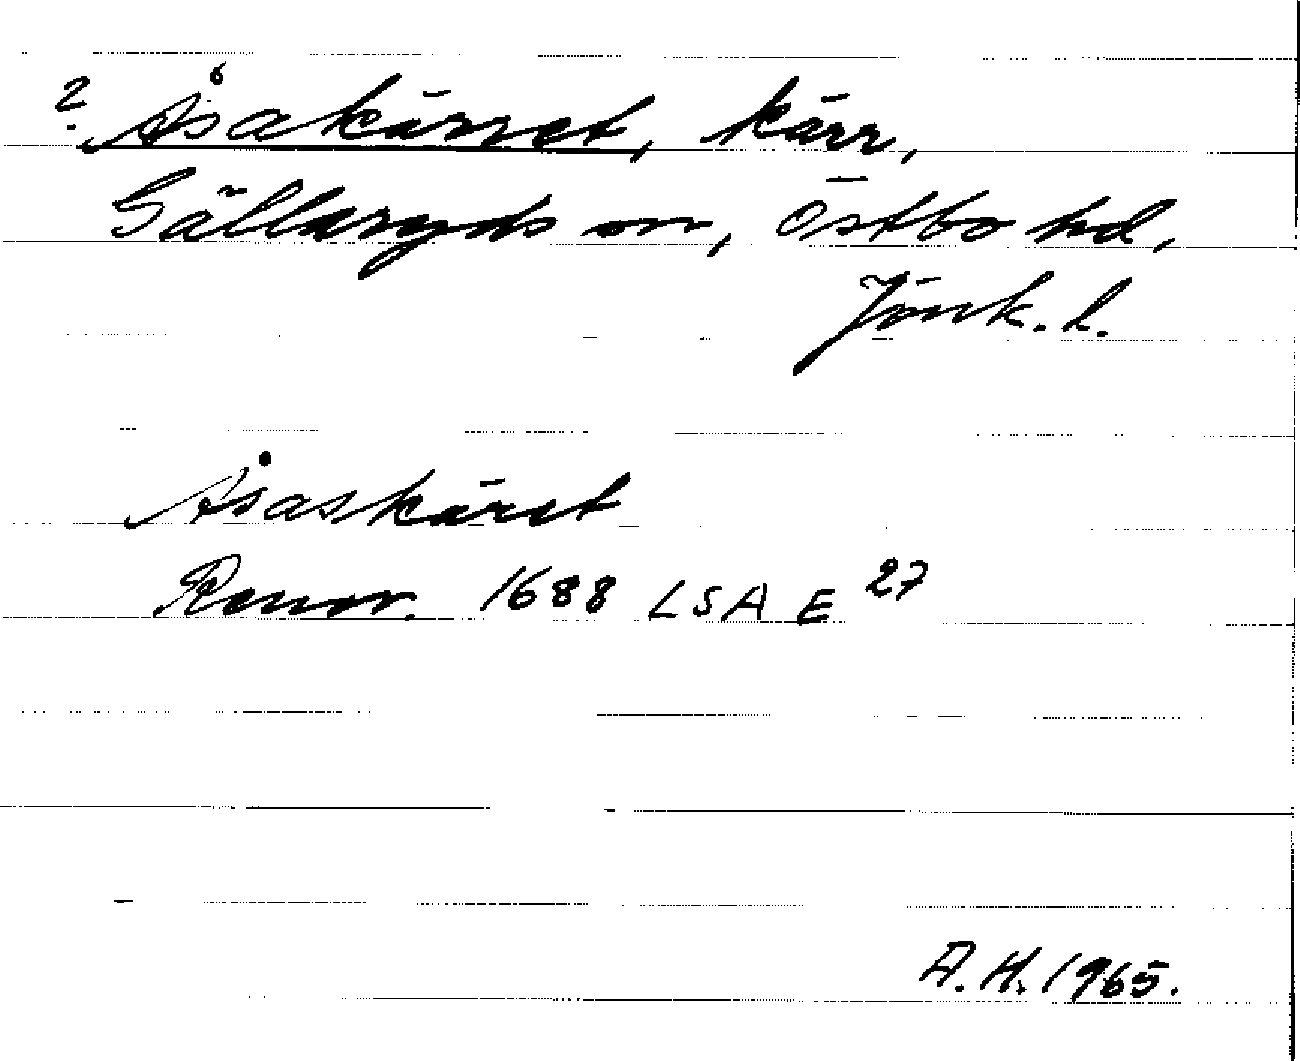 ? Åsakärret, kärr,
Gällaryds sn, Östbo hd,
Jönk. l.
Åsaskäret
Renov. 1688 LSA E 27
A.H. 1965.